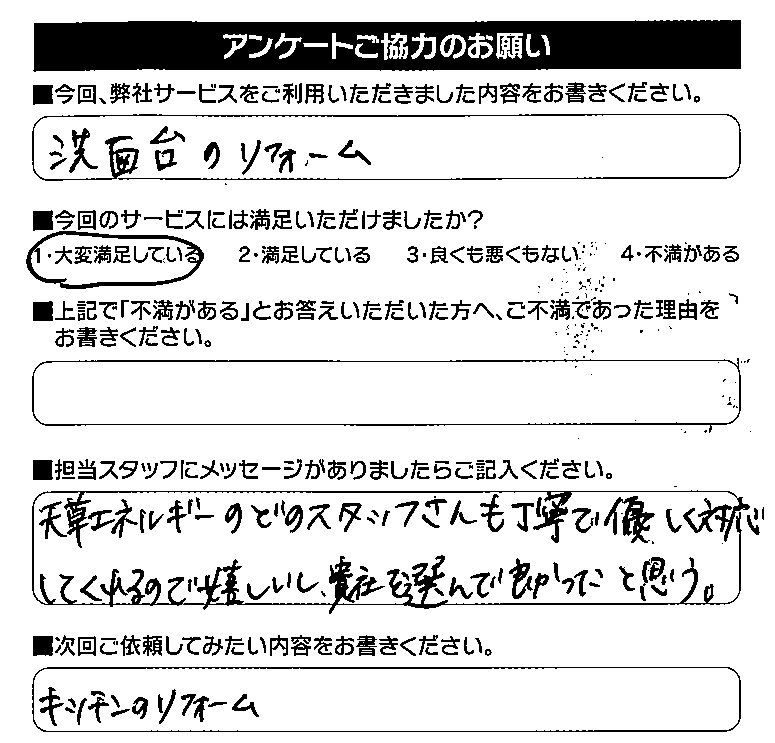 アンケートご協力のお願い
■今回、弊社サービスをご利用いただきました内容をお書きください。
洗面台のリフォーム
■今回のサービスには満足いただけましたか?
1・大変満足している 2・満足している 3・良くも悪くもない 4・不満がある
■上記で「不満がある」とお答えいただいた方へ、ご不満であった理由を
お書きください。
■担当スタッフにメッセージがありましたらご記入ください。
天草エネルギーのどのスタッフさんも丁寧で優しく対応
してくれるので嬉しいし、貴社を選んで良かったと思う。
■次回ご依頼してみたい内容をお書きください。
キッチンのリフォーム